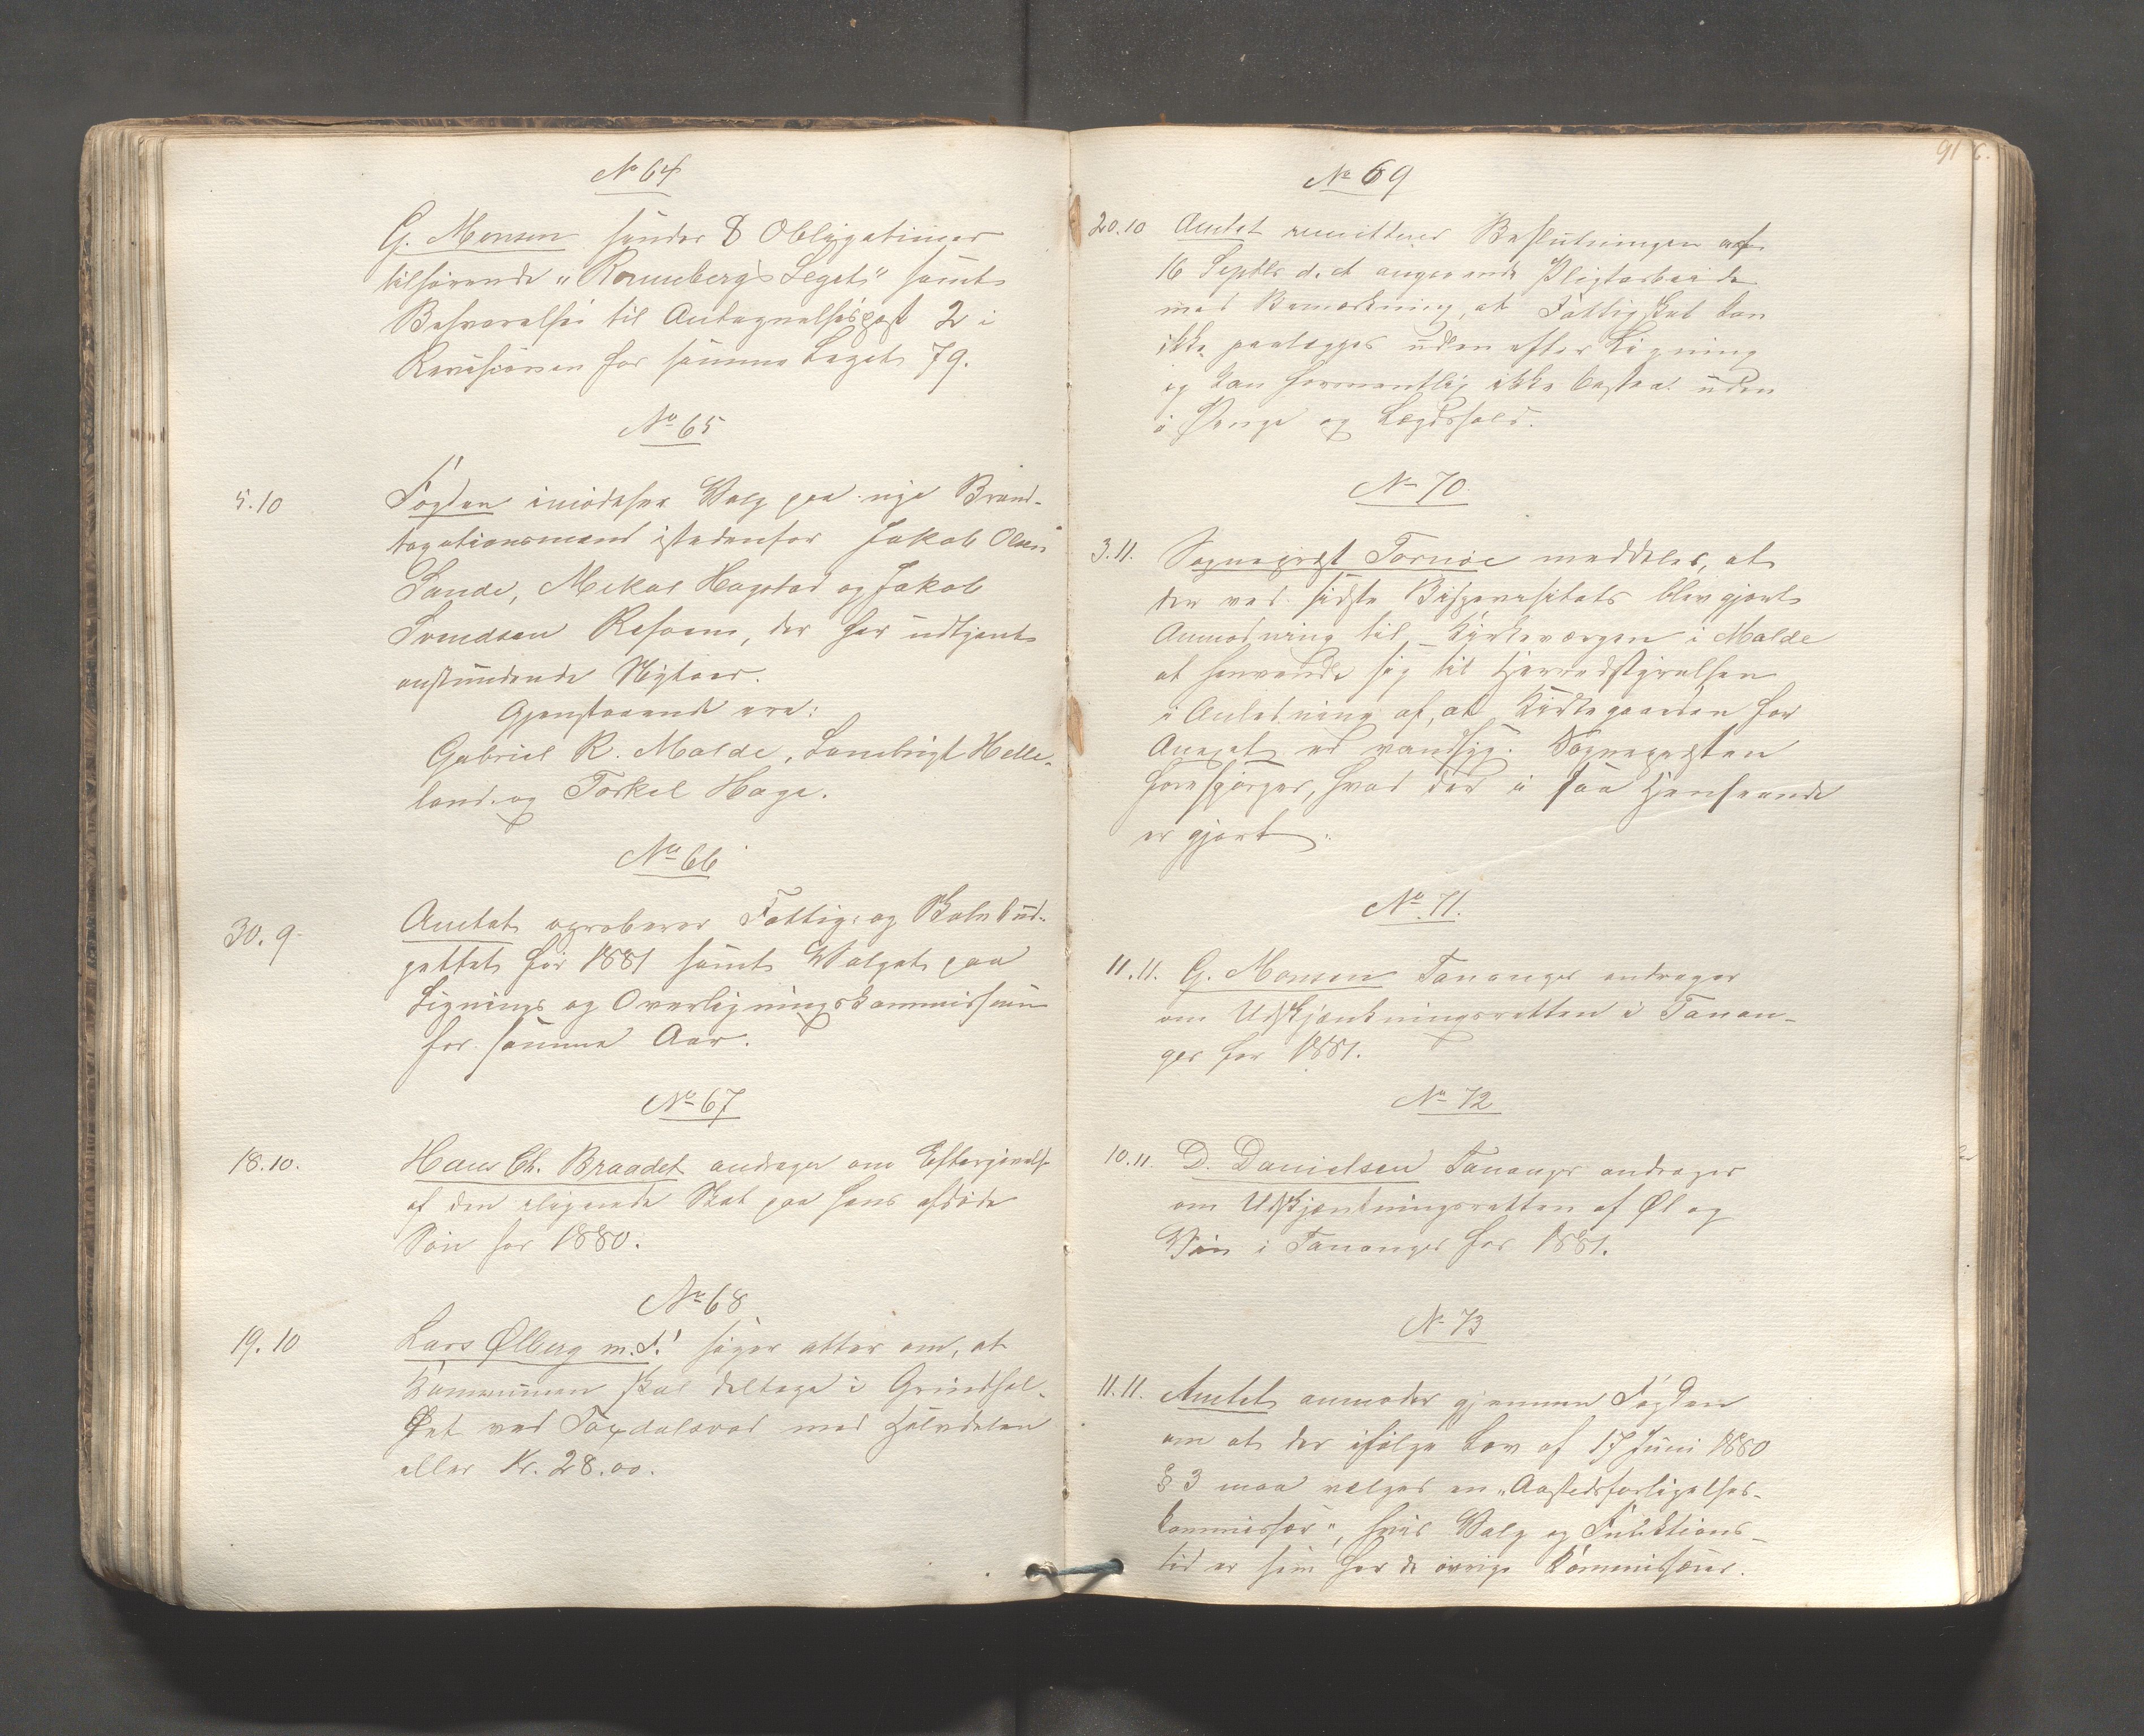 No 64
G. Monsen sender 8 Obligationer
tilhørende „Rønnebergs Legat" samt
Besvarelse til Antegnelsespost 2 i
Revisionen for samme Legat 79.
No 65
5.10 Fogden imødeser Valg paa nye Brand-
taxationsmænd istedenfor Jakob Olsen
Sande, Mikal Hagstad og Jakob
Svendsen Refsnes, der har udtjent
anstundende Nytaar.
Gjenstaaende ere:
Gabriel R. Malde, Lanbrigt Helle-
land og Torkel Haga.
No 66
30.9. Amtet approberer Fattig- og Skolebud-
gettet for 1881 samt Valget paa
Lignings og Overligningskommission
for samme Aar.
No 67
18.10. Hans Ch. Braadet andrager om Eftergivelse
af den ilignede Skat paa hans afdøde
Søn for 1880.
No 68
19.10 Lars Ølberg m. Fl. søger atter om, at
Kommunen skal deltage i Grindhol-
det ved Tagdalsvad med Halvdelen
eller Kr. 28.00.
91
No 69
20.10 Amtet remitterer Beslutningen af
16 Septbr d. A. angaaende Pligtarbeide
med Bemærkning, at Fattigskat kan
ikke paalægges uden efter Ligning
og kan formentlig ikke bestaa uden
i Penge og Lægdshold.
No 70
3.11. Sogneprest Tornøe meddeler, at
der ved sidste Bispevisitats blev gjort
Anmodning til Kirkeværgen i Malde
at henvende sig til Herredstyrelsen
i Anledning af, at Kirkegaarden for
Annexet er vandsyg. Sognepresten
forespørger, hvad der i saa Henseende
er gjort.
No 71.
11.11. G. Monsen Tananger andrager
om Udskjænkningsretten i Tanan-
ger for 1881.
No 72
10.11. D. Danielsen Tananger andrager
om Udskjænkningsretten af Øl og
Vin i Tananger for 1881.
No 73
11.11. Amtet anmoder gjennem Fogden
om at der ifølge Lov af 17 Juni 1880
§ 3 maa vælges en „Aastedsforligelses-
kommissær", hvis Valg og Funktions-
tid er som for de øvrige Kommissærer.